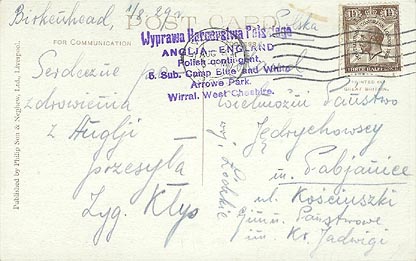 Birkenhead, 1/8 29 r.
POST CARD
Polska
FOR COMMUNICATION
Wyprawa Harcerstwa Polskiego
ANGLIA - ENGLAND
Polish contingent.
5. Sub. Camp Blue and White
Arrowe Park.
Wirral. West Cheshire.
Serdeczne
pozdrowienia
z Anglji
przesyła
Zyg. Kłys
Wielmożni Państwo
Jędrychowscy
m. Pabjanice
ul. Kościuszki
Gimn. Państwowe
im Kr. Jadwigi
woj. Łódzkie
Published by Philip Son & Nephew, Ltd., Liverpool.
PRINTED IN
GREAT BRITAIN.